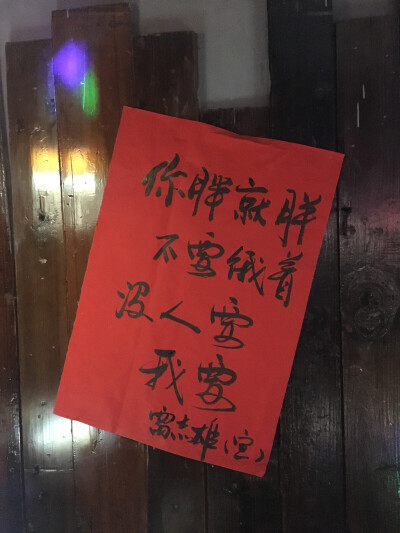 你胖就胖
不要俄着
没人要
我要
志雄